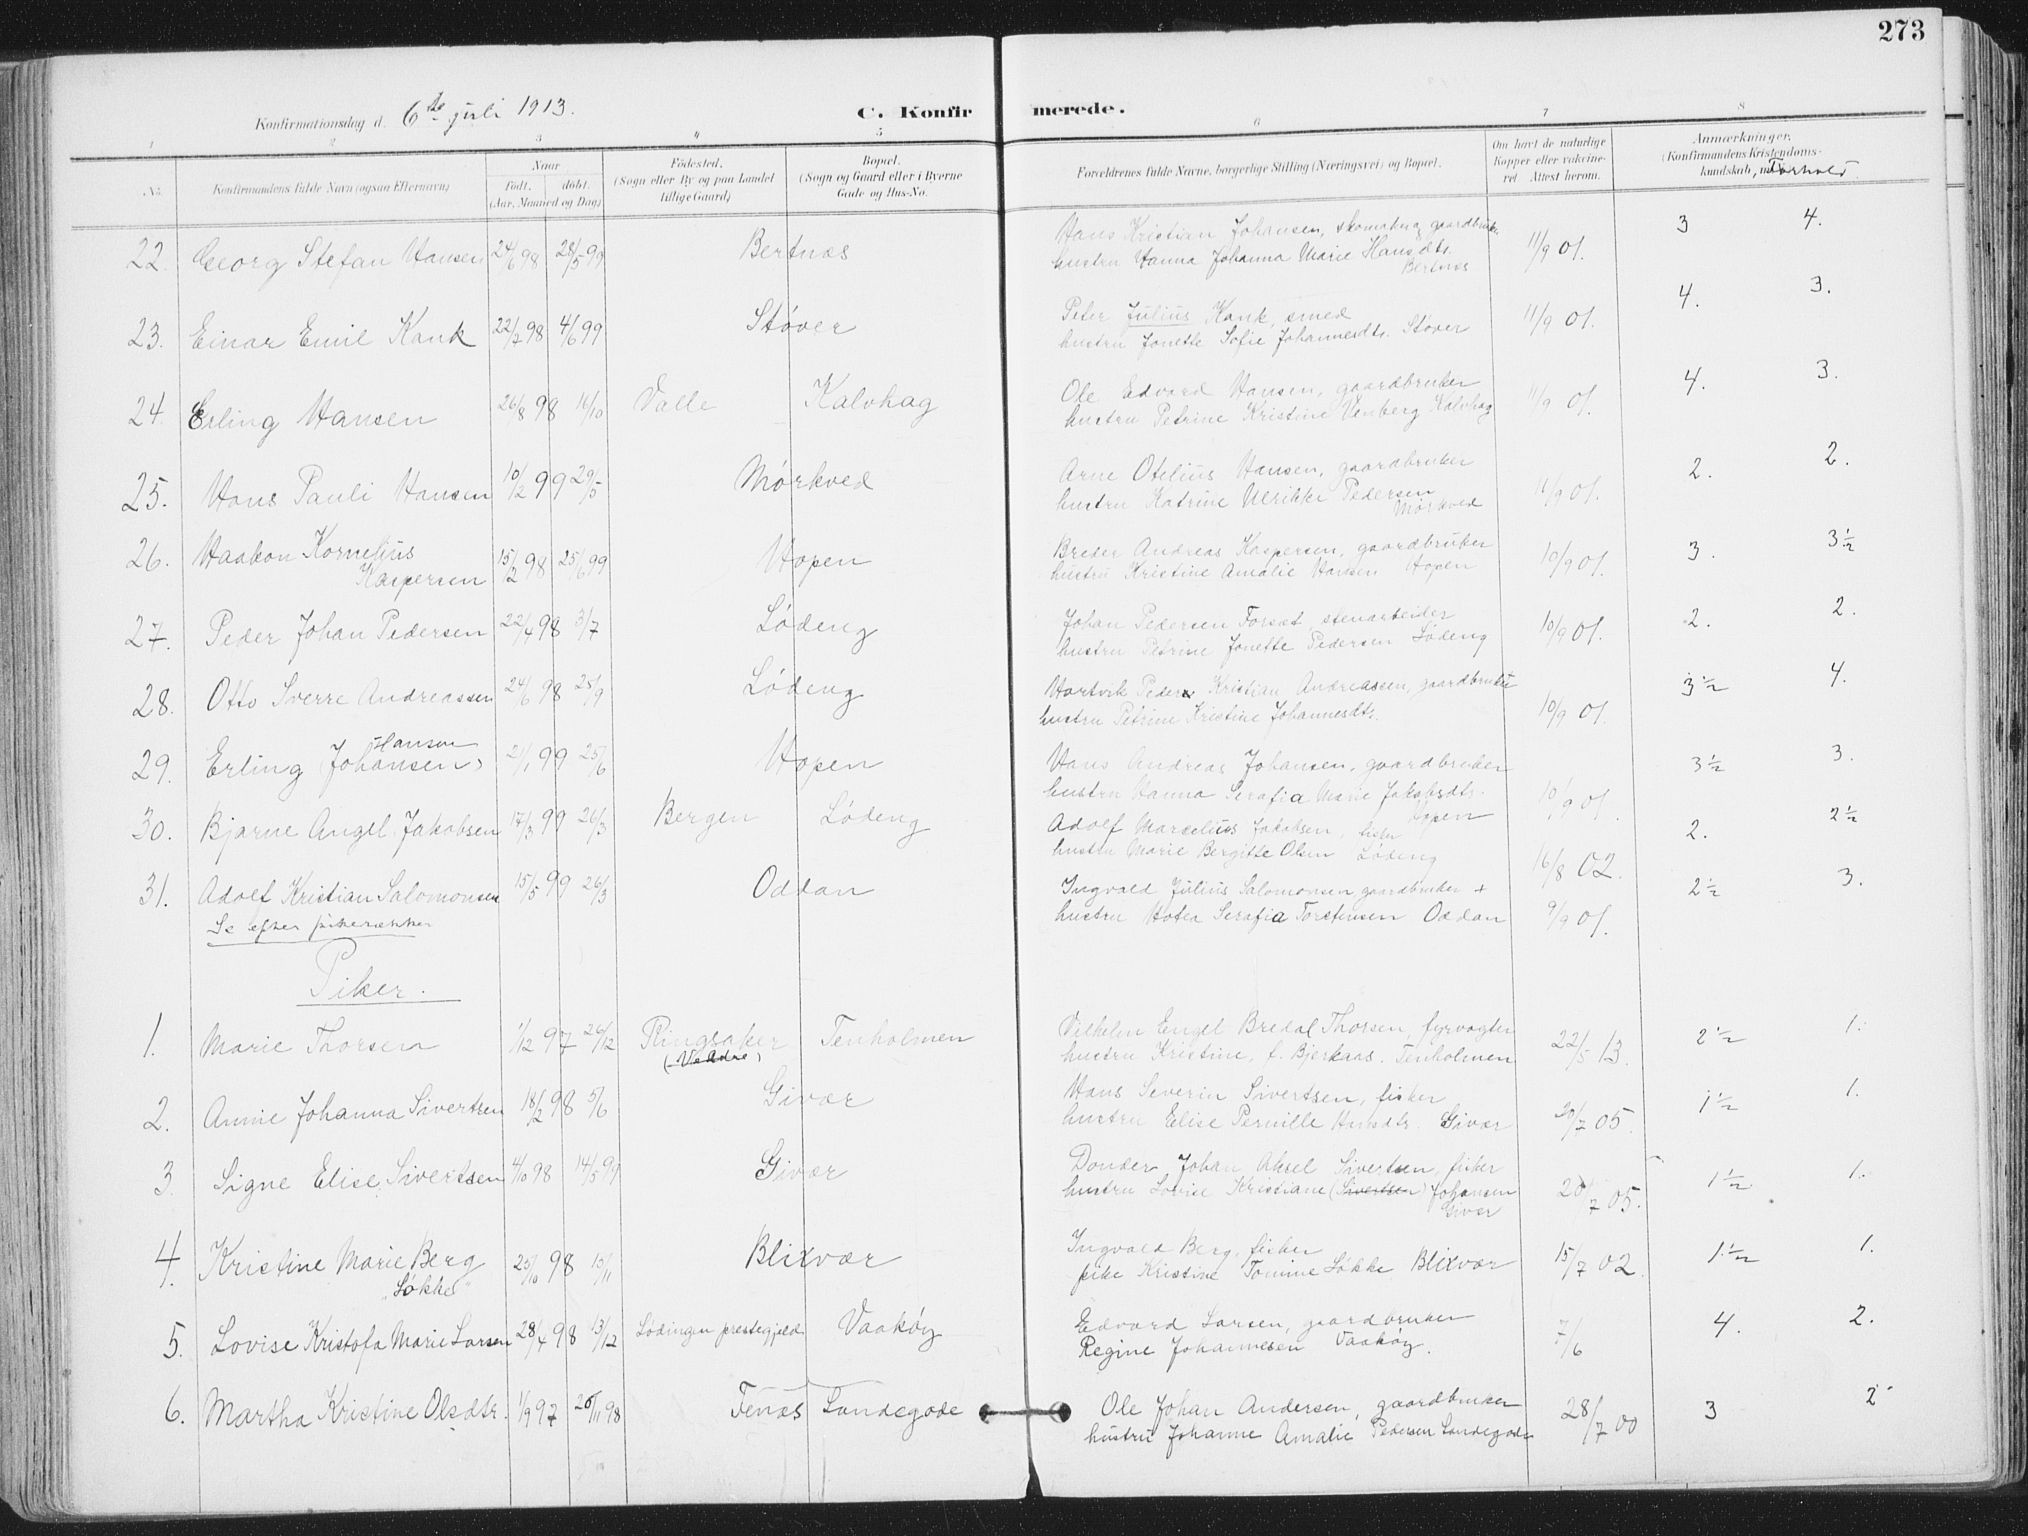 273
Konfirmationsdag d. 6te juli 1913. C. Konfirmerede.
1 2 3 4 5 6 7 8
No. Konfirmandens fulde Navn (ogsaa Efternavn) Naar født. døbt. (Aar, Maaned og Dag) Fødested. (Sogn eller By og paa Landet tillige Gaard) Bopæl. (Sogn og Gaard eller i Byerne Gade og Hus-No. Forældrenes fulde Navne, borgerlige Stilling (Næringsvei) og Bopæl. Om havt de naturlige Kopper eller vakcineret. Attest herom. Anmærkninger. (Konfirmandens Kristendomskundskab, Forhold
22. Georg Stefan Hansen 24/6 98 28/5 99 Bertnæs Hans Kristian Johansen, skomaker, gaardbruker 11/9 01. 3 4.
hustru Hanna Johanna Marie Hansdtr. Bertnæs
23. Einar Emil Kank 22/7 98 4/6 99 Støver Peter Julius Kank, smed 11/9 01. 4. 3.
hustru Jonette Sofie Johannesdtr. Støver
24. Erling Hansen 26/8 98 16/10 Valle Kalvhag Ole Edvard Hansen, gaardbruker 11/9 01. 4. 3.
hustru Petrine Kristine Venberg Kalvhag
25. Hans Pauli Hansen 10/2 99 29/5 Mørkved Arne Otelius Hansen, gaardbruker 11/9 01. 2. 2.
hustru Katrine Ulrikke Pedersen Mørkved
26. Haakon Kornelius Kaspersen 15/12 98 25/6 99 Hopen Breder Andreas Kaspersen, gaardbruker 10/9 01. 3. 3½
hustru Kristine Amalie Hansen Hopen
27. Peder Johan Pedersen 22/4 98 3/7 Løding Johan Pedersen Forsæt, stenarbeider 10/9 01. 2. 2.
hustru Petrine Jonette Pedersen Løding
28. Otto Sverre Andreassen 24/6 98 25/9 Løding Hartvik Peder Kristian Andreassen, gaardbruker 10/9 01. 3½ 4.
hustru Petrine Kristine Johannesdtr.
29. Erling Hansen (Johansen) 21/1 99 25/6 Hopen Hans Andreas Johansen, gaardbruker 10/9 01. 3½ 3.
hustru Hanna Serafia Marie Jakobsdtr. Hopen
30. Bjarne Angel Jakobsen 17/3 99 26/3 Bergen Løding Adolf Marcelius Jakobsen, fisker 16/8 02. 2. 2½
hustru Marie Bergitte Olsen Løding
31. Adolf Kristian Salomonsen 15/5 99 26/3 Oddan Ingvald Julius Salomonsen gaardbruker + 9/9 01. 2½ 3.
hustru Hotea Serafia Torstensen Oddan
Se efter pikerækken
Piker.
1. Marie Thorsen 1/12 97 26/12 Ringsaker (Veldre) Tenholmen Vilhelm Engel Bredal Thorsen, fyrvogter 22/5 13. 2½ 1.
hustru Kristine, f. Bjerkaas. Tenholmen
2. Annie Johanna Sivertsen 18/2 98 5/6 Givær Hans Severin Sivertsen, fisker 20/7 05. 1½ 1.
hustru Elise Pernille Hansdtr. Givær
3. Signe Elise Sivertsen 4/10 98 14/5 99 Givær Donder Johan Aksel Sivertsen, fisker 20/7 05. 1½ 1.
hustru Lovise Kristiane (Sivertsen) Johansen Givær
4. Kristine Marie Berg "Løkke" 25/10 98 13/11 Blixvær Ingvald Berg, fisker 15/7 02 1½ 1.
pike Kristine Tomine Løkke Blixvær
5. Lovise Kristofa Marie Larsen 28/4 98 13/12 Lødingen prestegjeld Vaakøy Edvard Larsen, gaardbruker 7/6 4. 2.
Regine Johannesen Vaakøy.
6. Martha Kristine Olsdtr. 1/9 97 20/11 98 Fenæs Landegode Ole Johan Andersen, gaardbruker 28/7 00 3 2
hustru Johanne Amalie Pedersen Landegode